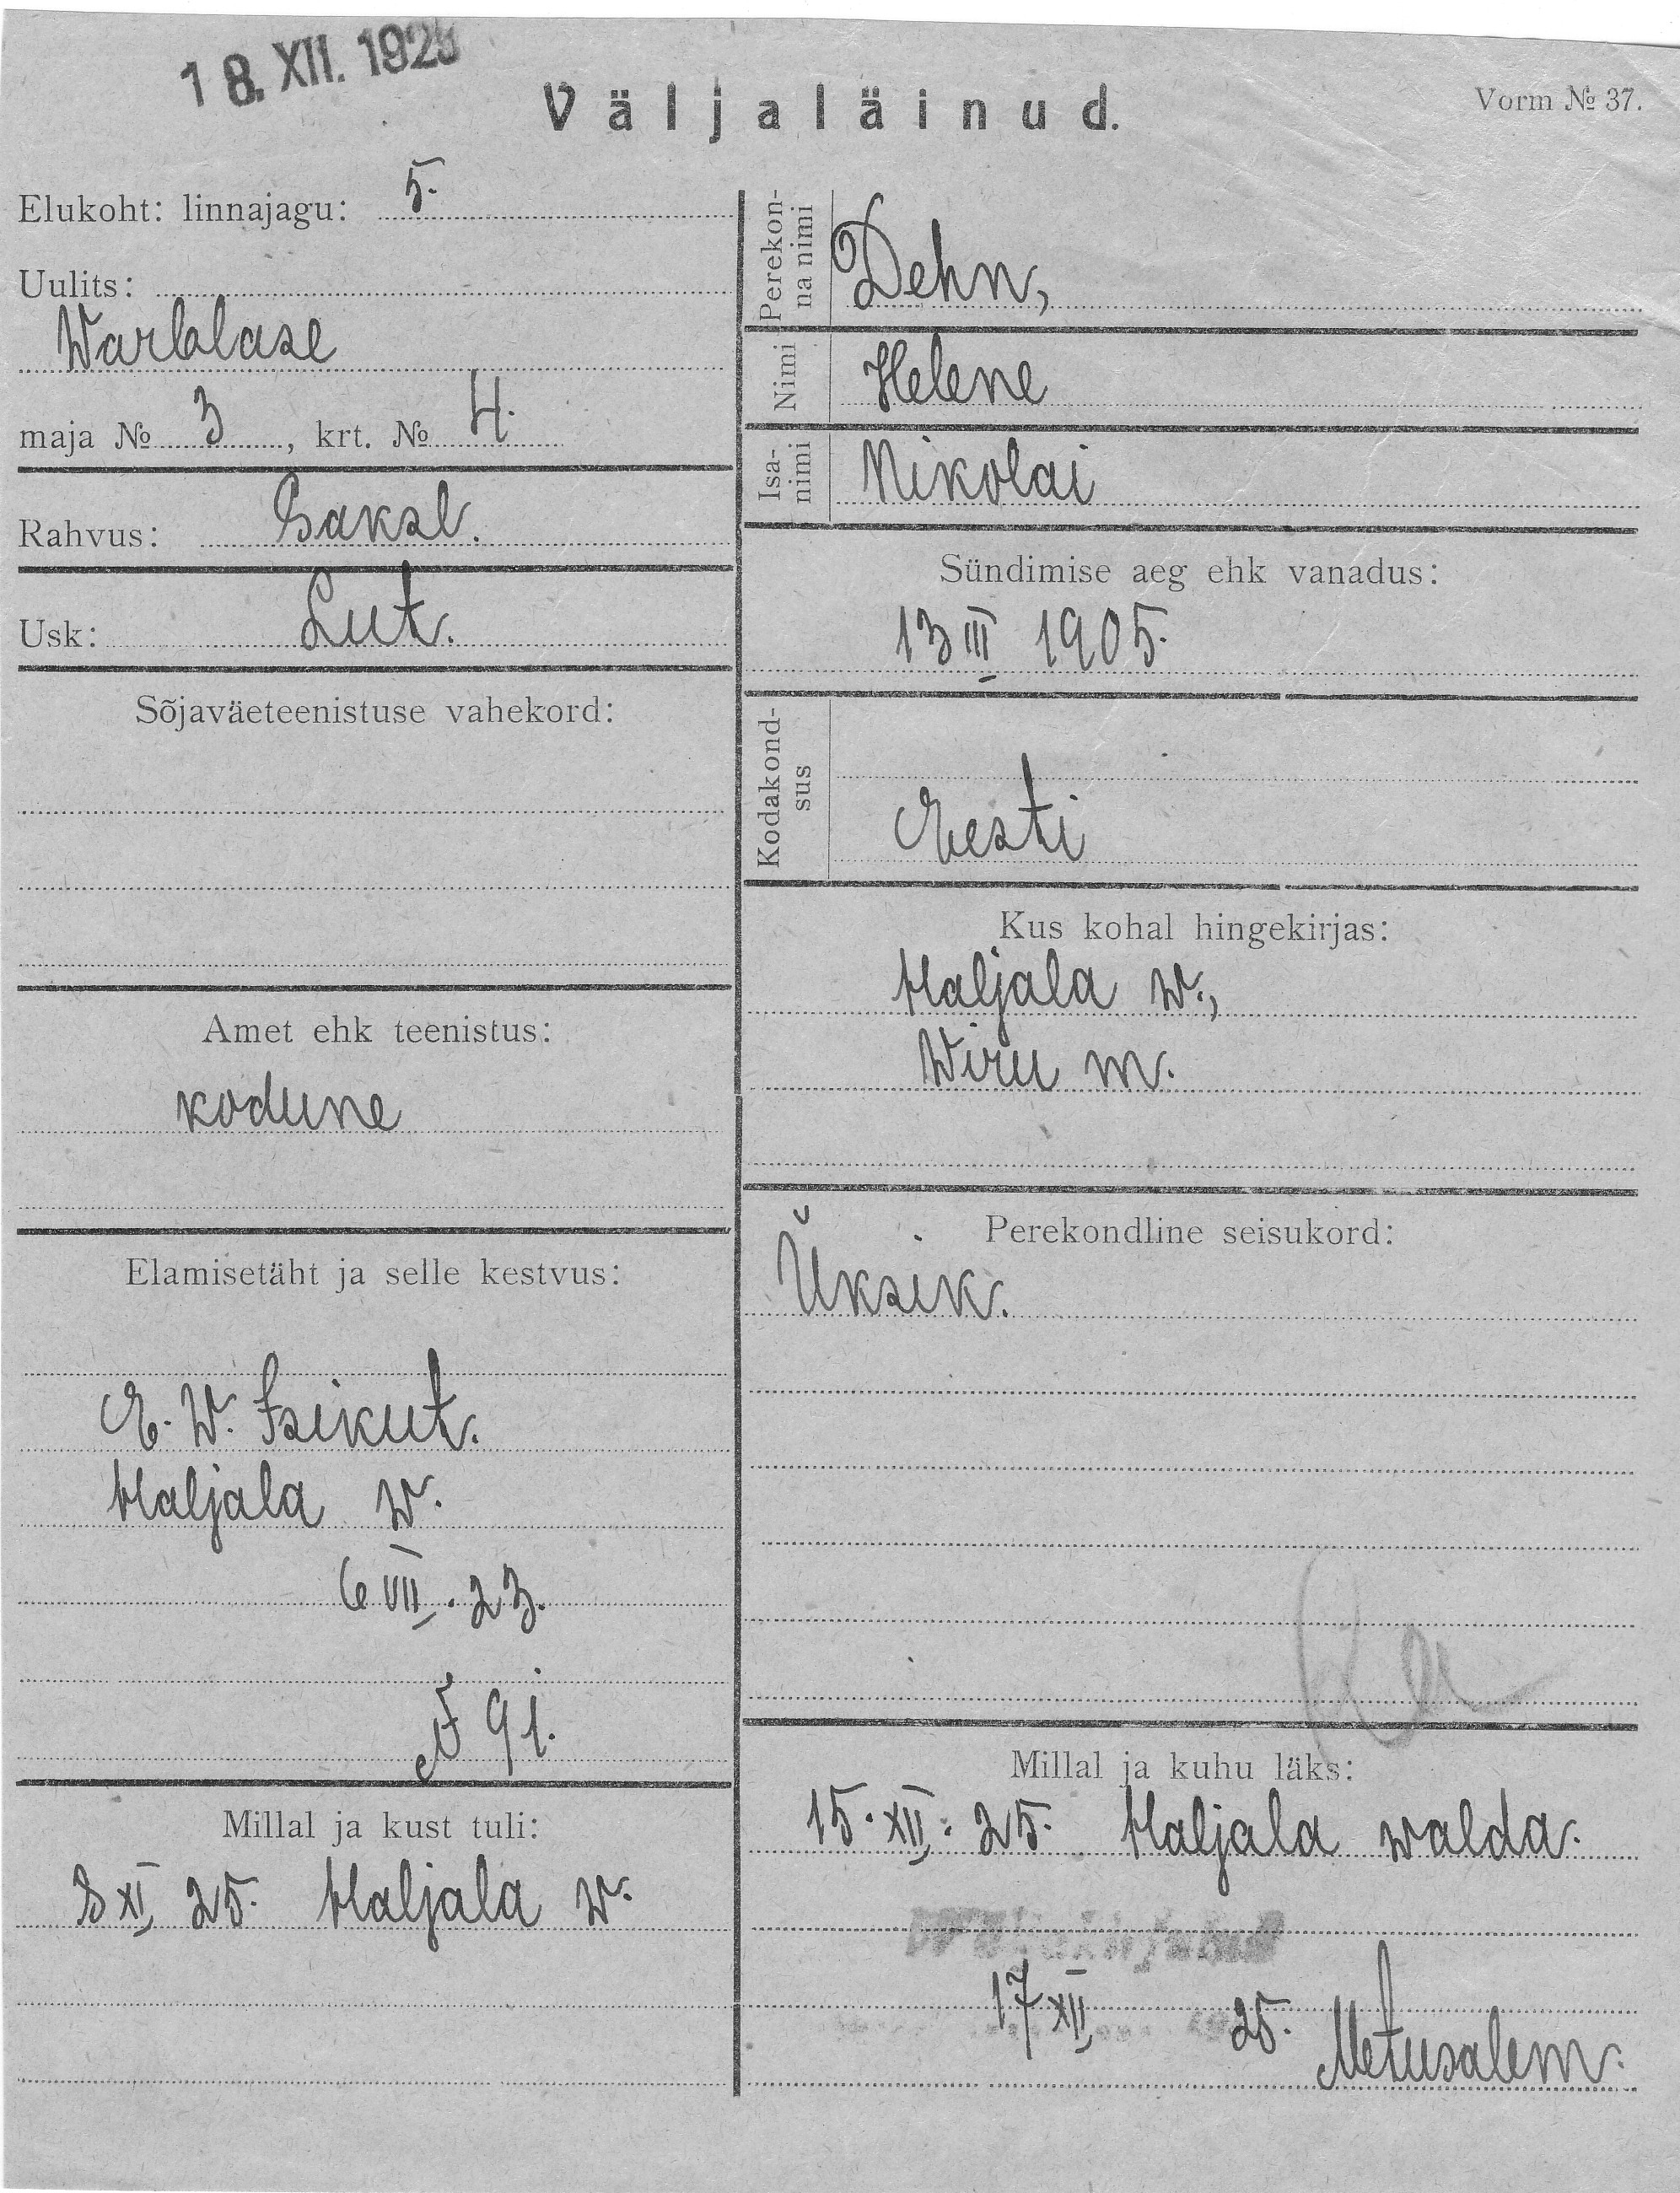 18. XII. 1925
Väljaläinud.
Vorm № 37.
Elukoht: linnajagu: 5.
Uulits:
Warblase
maja № 3, krt. № 4.
Rahvus: Saksl.
Usk: Lut.
Sõjaväeteenistuse vahekord:
Amet ehk teenistus:
kodune
Elamisetäht ja selle kestvus:
E. W. Isikut.
Haljala w.
6 VII. 23.
№ 91.
Millal ja kust tuli:
8 XI 25. Haljala w.
Perekonna nimi
Dehn,
Nimi
Helene
Isa-
nimi
Nikolai
Sündimise aeg ehk vanadus:
13 III 1905.
Kodakond-
sus
Eesti
Kus kohal hingekirjas:
Haljala w.,
Wiru m.
Perekondline seisukord:
Üksik.
Millal ja kuhu läks:
15. XII. 25. Haljala walda.
17 XII 25. Metusalem.